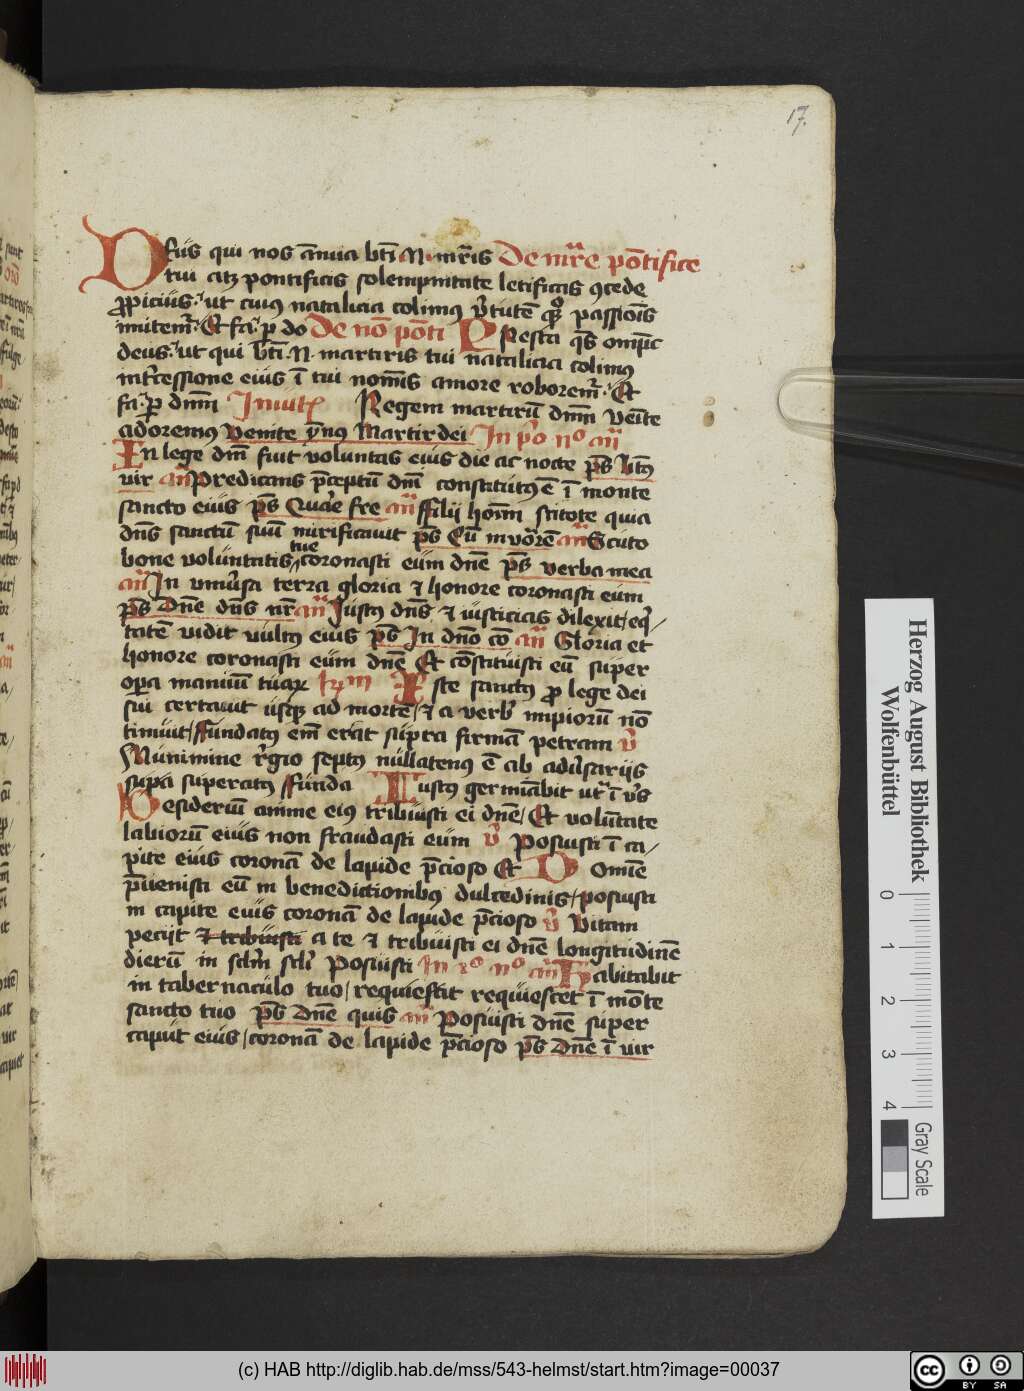 17.
Deus qui nos ãnua bti N. mr̃is De mr̃e põtifice
tui atqz pontificis solempnitate letificas ꝯcede
ꝓpicius ut cuius natalicia colimus v̾tutẽ qͦqꝫ passiois
imitem̃ Et fa. ꝑ do De nõ põti Presta qs̃ omp̃c
deus ut qui bti N. martiris tui natalicia colimus
int̾cessione eius ĩ tui noĩs amore roborem̃ Et
fa ꝑ dnm Inuit Regem martirũ dnm Veĩte
adoremus Venite ymnus Martir dei In pͦ nͦ añ
In lege dnĩ fuit voluntas eius die ac nocte ps̃ btũs
vir añ Predicans p̃ceptũ dnĩ constitutus ẽ ĩ monte
sancto eius ps̃ Quare fre añ ffilij hoĩm scitote quia
dñs sanctũ suũ mirificauit ps̃ Cũ inuõrẽ añ Scuto
bone voluntatis tue coronasti eum dnẽ ps̃ verba mea
añ In vniu̾sa terra gloria ⁊ honore coronasti eum
ps̃ Dnẽ dñs nr̃ añ Justus dñs ⁊ iusticias dilexit / eq̃
tatẽ vidit vultus eius ps̃ In dnõ cõ añ Gloria et
honore coronasti eum dnẽ Et cõstituisti eũ super
opa manuũ tuaꝝ Iste sanctus ꝓ lege dei
sui certauit usqꝫ ad mortẽ / ⁊ a verb̾ impiorũ nõ
timuit / ffundatus em̃ erat supra firmã petram v̾
Munimine r̾gio septus nullatenus ẽ ab adu̾sarijs
supa superatus ffunda Iustus germiabit ut ĩ v̾s
Desideriũ anime eius tribuisti ei dnẽ / Et volũtate
labiorũ eius non fraudasti eum v̾ Posuisti ĩ ca /
pite eius coronã de lapide p̃cioso Et Domiẽ
p̃uenisti eũ in benedictionibus dulcedinis / posuisti
in capite euis coronã de lapide p̃cioso v̾ Vitam
pecijt ⁊ tribuisti a te ⁊ tribuisti ei dnẽ longitudinẽ
dierũ in sclm̃ scli Posuisti In 2ͦ nͦ añ Habitabit
in tabernaculo tuo / requiescit requiescet ĩ mõte
sancto tuo ps̃ Dnẽ quis añ Posuisti dnẽ super
caput eius / coronã de lapide p̃cioso ps̃ Dnẽ ĩ vir
Herzog August Bibliothek
Wolfenbüttel
0 1 2 3 4
Gray Scale
(c) HAB http://diglib.hab.de/mss/543-helmst/start.htm?image=00037
cc BY SA